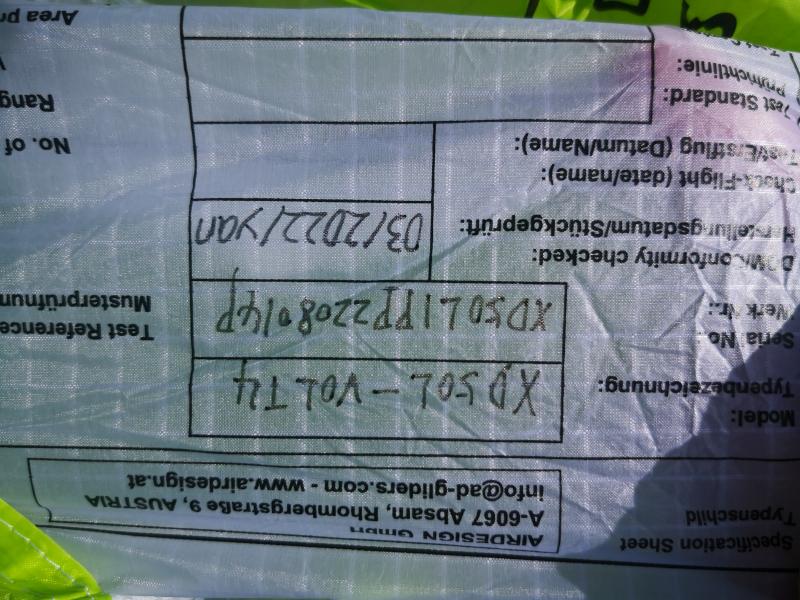 Specification Sheet
Typenschild
AIRDESIGN GmbH
A-6067 Absam, Rhombergstraße 9, AUSTRIA
info@ad-gliders.com - www.airdesign.at
Model:
Typenbezeichnung:
XDSOL - VOLT4
Serial No.
Werk Nr.:
XDSOL1PP2208014P
Test Reference
Musterprüfnum
DOM/Conformity checked:
Herstellungsdatum/Stückgeprüft:
03/2022/yan
Check-Flight (date/name):
Test/Erstflug (Datum/Name):
No. of
Test Standard:
Prüfrichtlinie:
Rang
Area pr